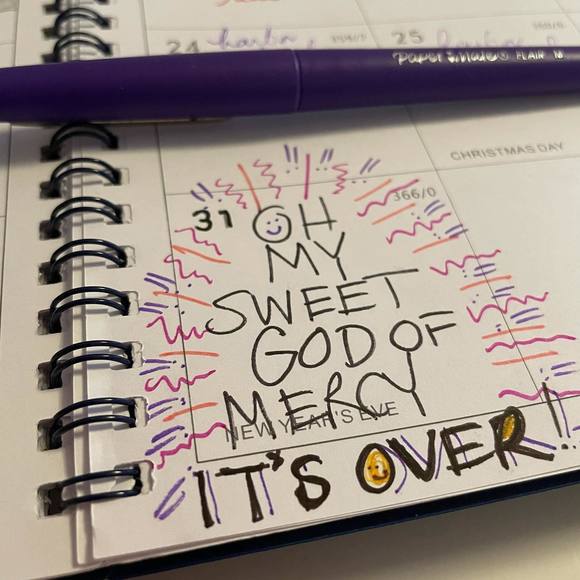 24
25
Paper Mate FLAIR M
CHRISTMAS DAY
31
366/0
OH
MY
SWEET
GOD OF
MERCY
NEW YEAR'S EVE
IT'S OVER!